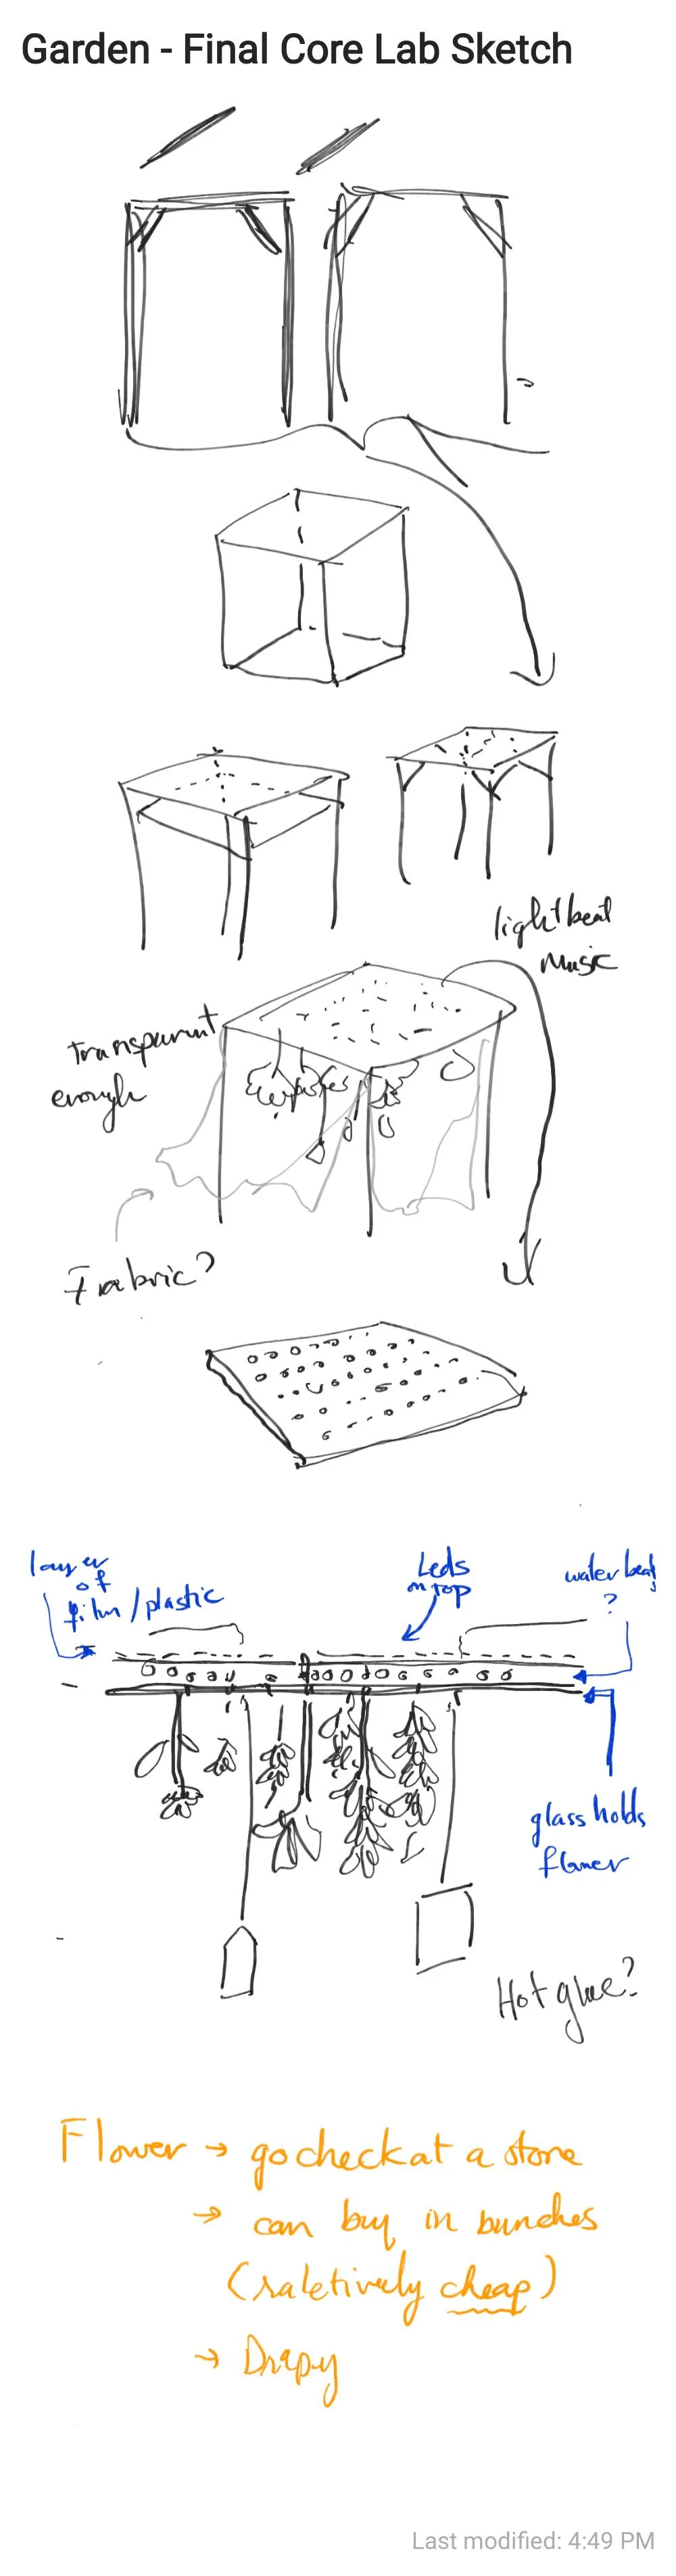 Garden - Final Core Lab Sketch
lightbeat
Music
transparent
enough
Fabric?
layer
of
film/plastic
Leds
on top
water beads
?
glass holds
flower
Hot glue?
Flower → go check at a store
→ can buy in bunches
(raletively cheap)
→ Drapy
Last modified: 4:49 PM